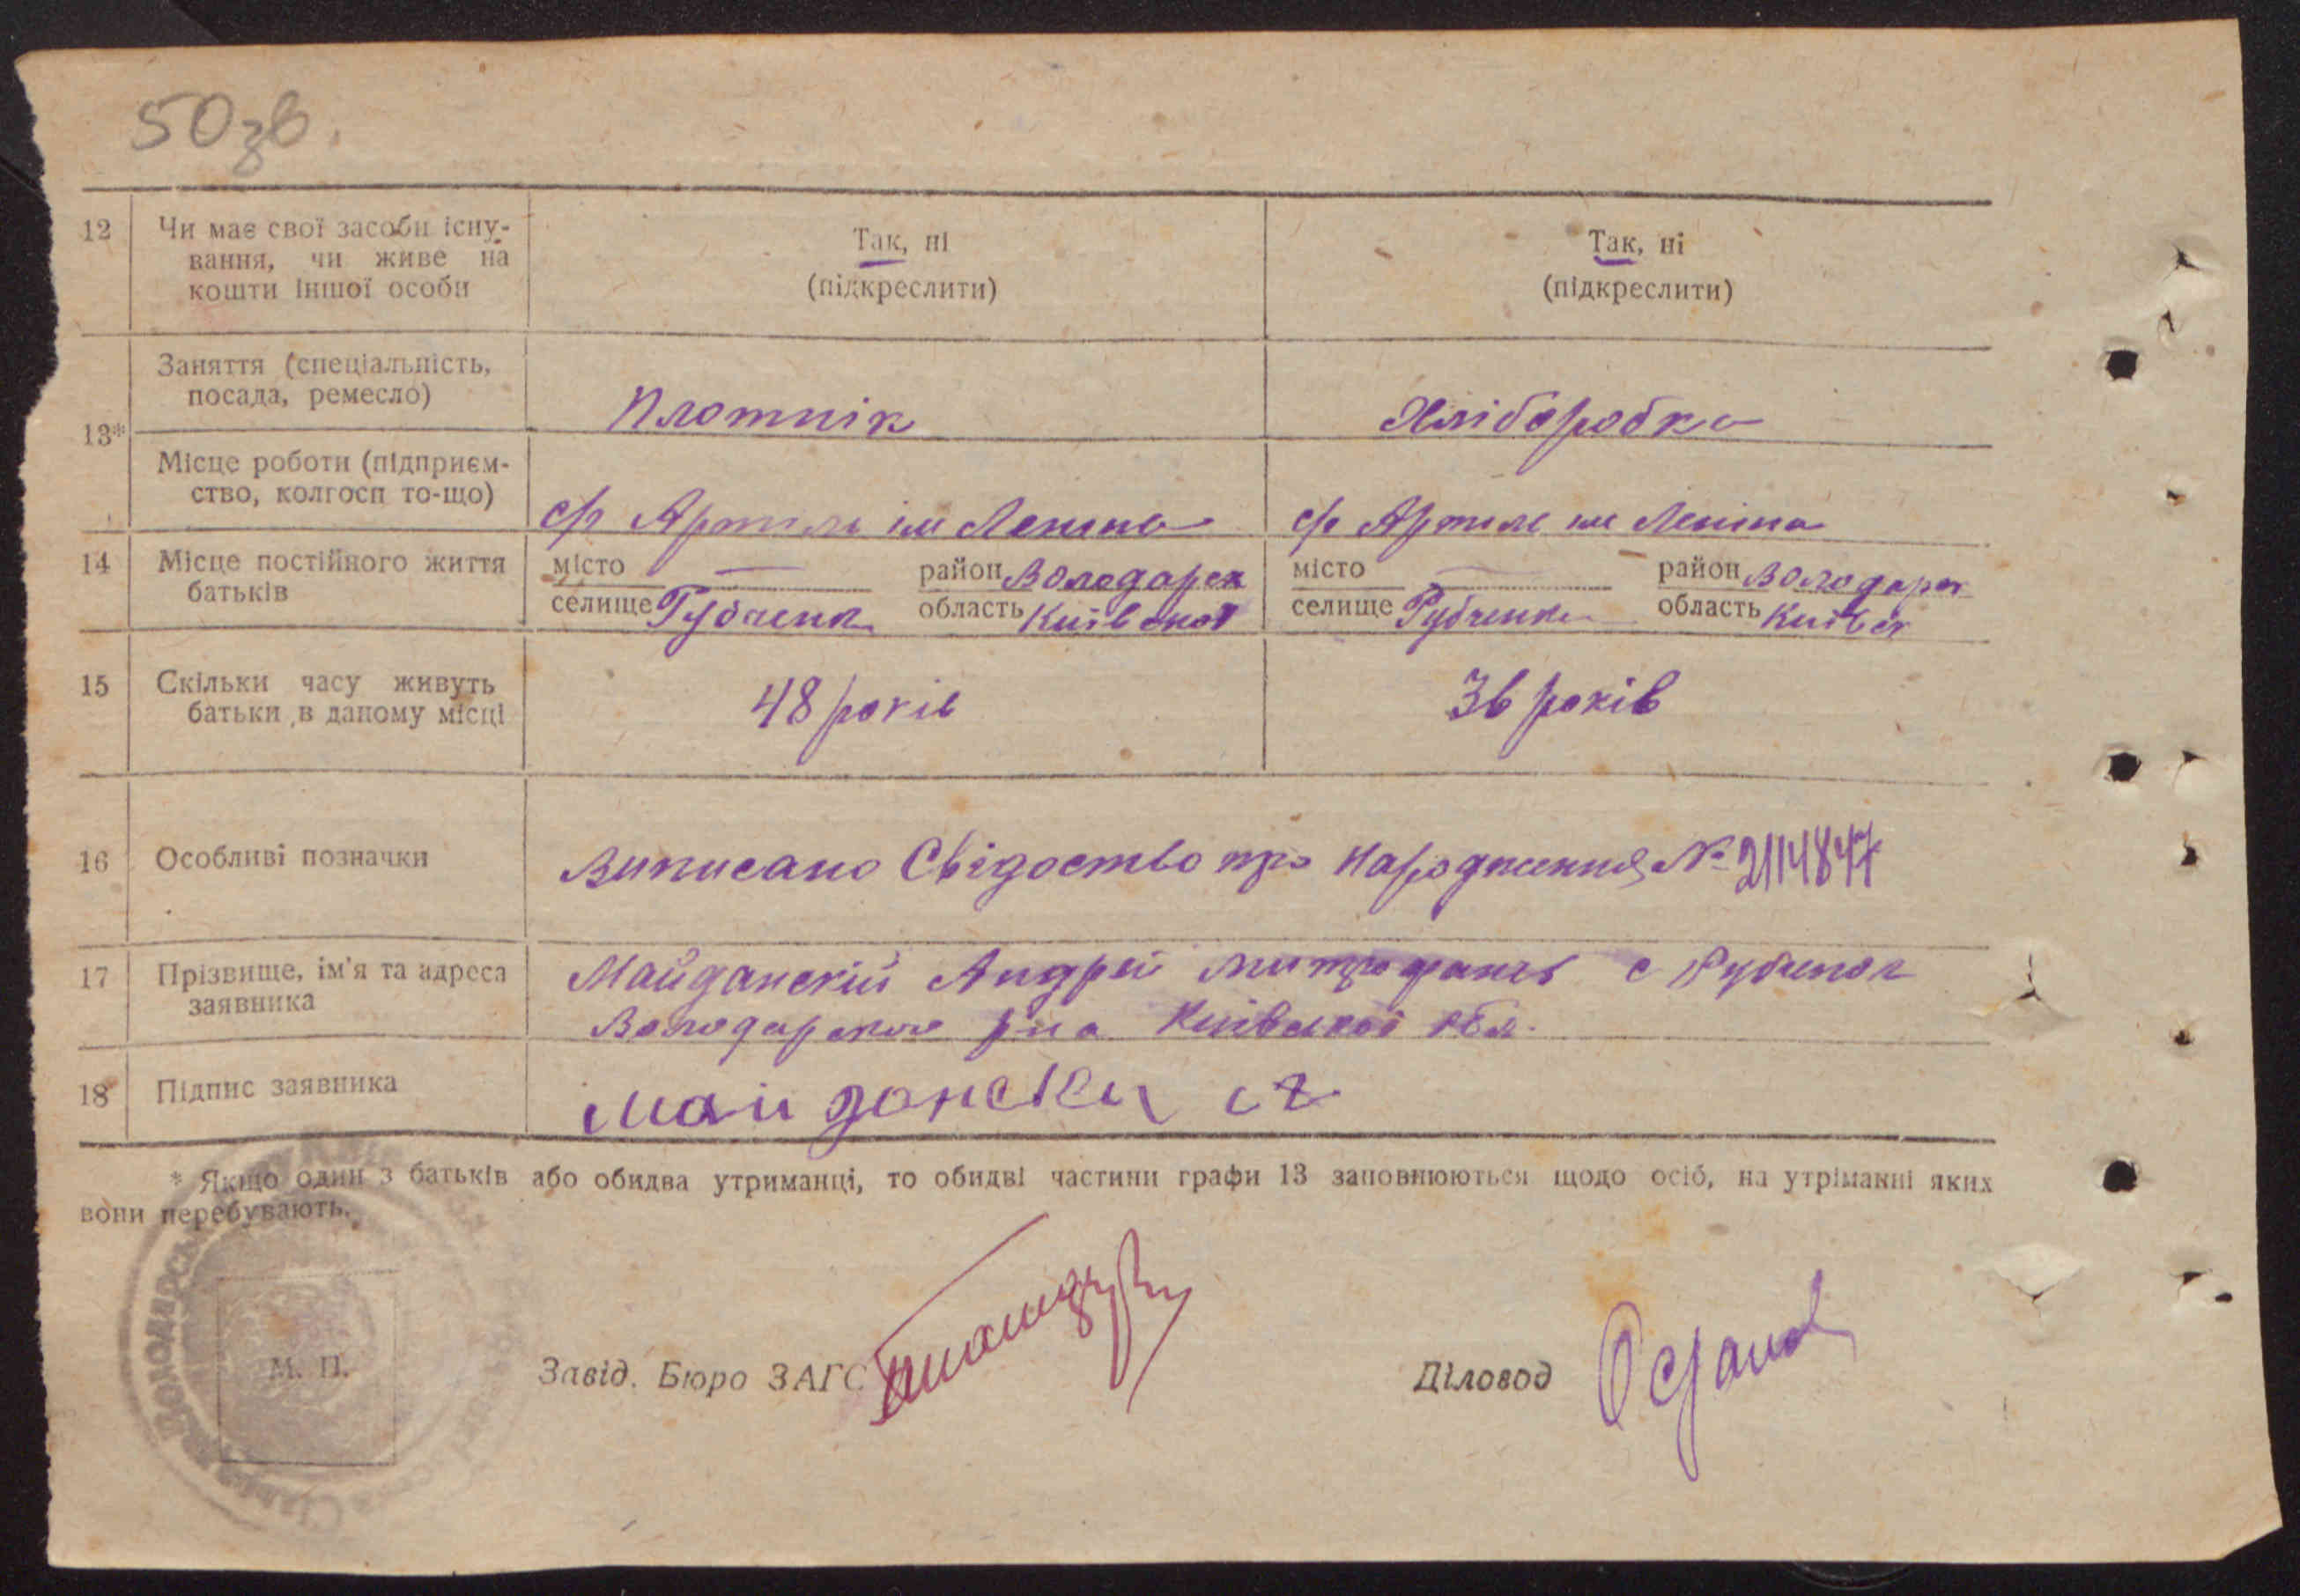 50зв.
12 Чи має свої засоби існу- Так, ні Так, ні
вання, чи живе на (підкреслити) (підкреслити)
кошти іншої особи
Заняття (спеціальність,
посада, ремесло) Плотнік Хліборобка
13*
Місце роботи (підприєм-
ство, колгосп то-що) с/г Артиль ім Леніна с/г Артиль ім Леніна
14 Місце постійного життя місто — район Володарск місто — район Володарск
батьків селище Рубченк область Київської селище Рубченки область Київск
15 Скільки часу живуть 48 років 36 років
батьки в даному місці
16 Особливі позначки Виписано Свідоство про народження № 2114847
17 Прізвище, ім'я та адреса Майданскій Андрей Митрофанов с Рубченок
заявника Володарского р-на Київської обл.
18 Підпис заявника
* Якщо один з батьків або обидва утриманці, то обидві частини графи 13 заповнюються щодо осіб, на утріманні яких
вони перебувають.
М. П.
Завід. Бюро ЗАГС Діловод